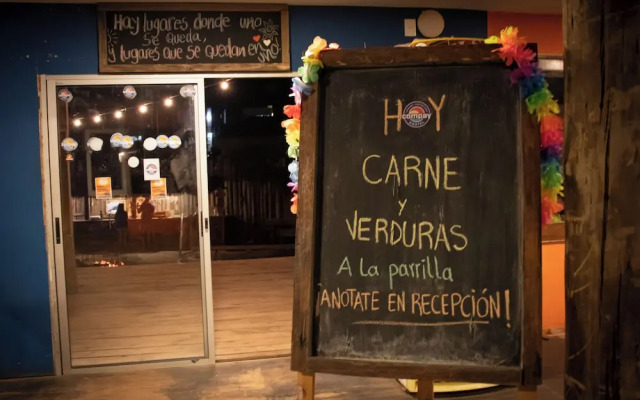 Hay lugares donde uno
se queda,
y lugares que se quedan en
uno!
HOY
compay
CARNE
y
VERDURAS
A la parrilla
¡ANOTATE EN RECEPCIÓN!